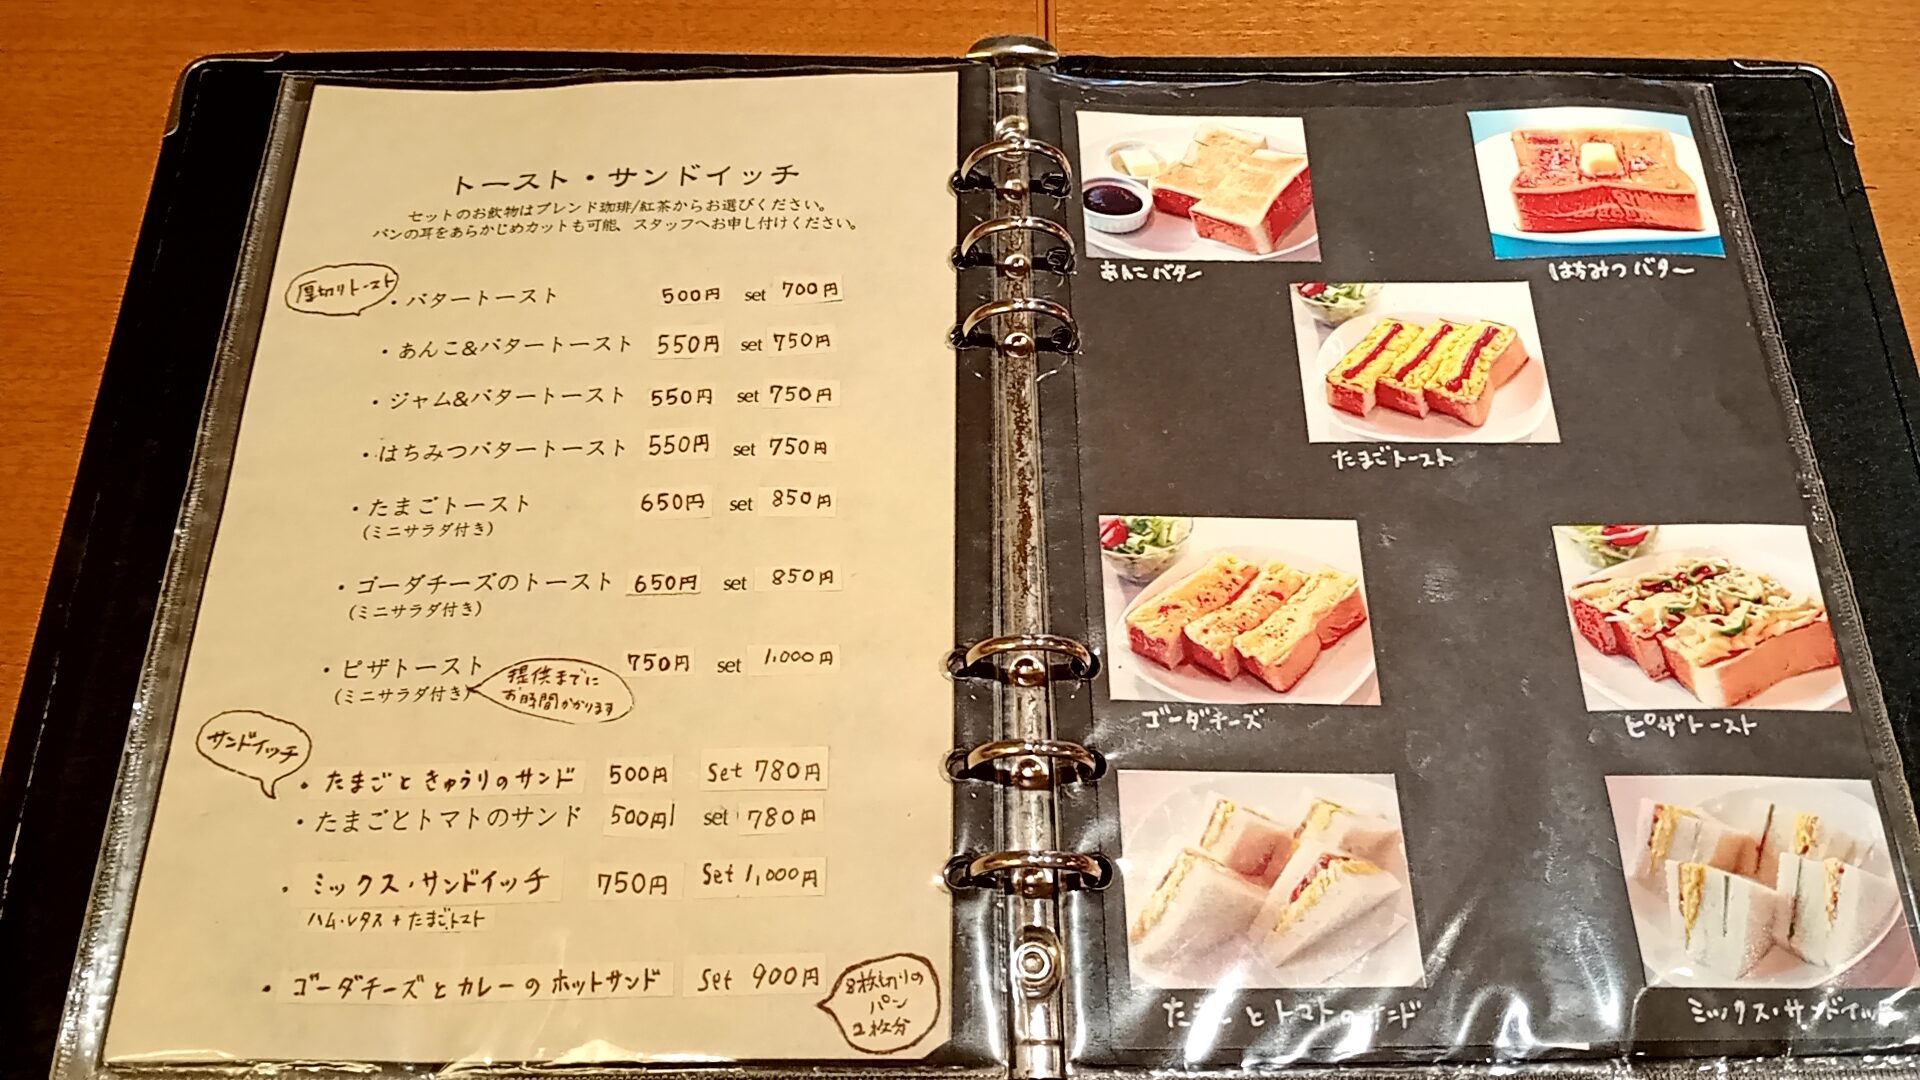 トースト・サンドイッチ
セットのお飲物はブレンド珈琲/紅茶からお選びください。
パンの耳をあらかじめカットも可能、スタッフへお申し付けください。
厚切りトースト
・バタートースト 500円 set 700円
・あんこ&バタートースト 550円 set 750円
・ジャム&バタートースト 550円 set 750円
・はちみつバタートースト 550円 set 750円
・たまごトースト 650円 set 850円
(ミニサラダ付き)
・ゴーダチーズのトースト 650円 set 850円
(ミニサラダ付き)
・ピザトースト 750円 set 1,000円
(ミニサラダ付き)
提供までに
お時間かかります
サンドイッチ
・たまごときゅうりのサンド 500円 Set 780円
・たまごとトマトのサンド 500円 set 780円
・ミックス・サンドイッチ 750円 Set 1,000円
ハム・レタス+たまごトマト
・ゴーダチーズとカレーのホットサンド Set 900円
8枚切りの
パン
2枚分
あんこバター
はちみつバター
たまごトースト
ゴーダチーズ
ピザトースト
たまごとトマトのサンド
ミックス・サンドイッチ